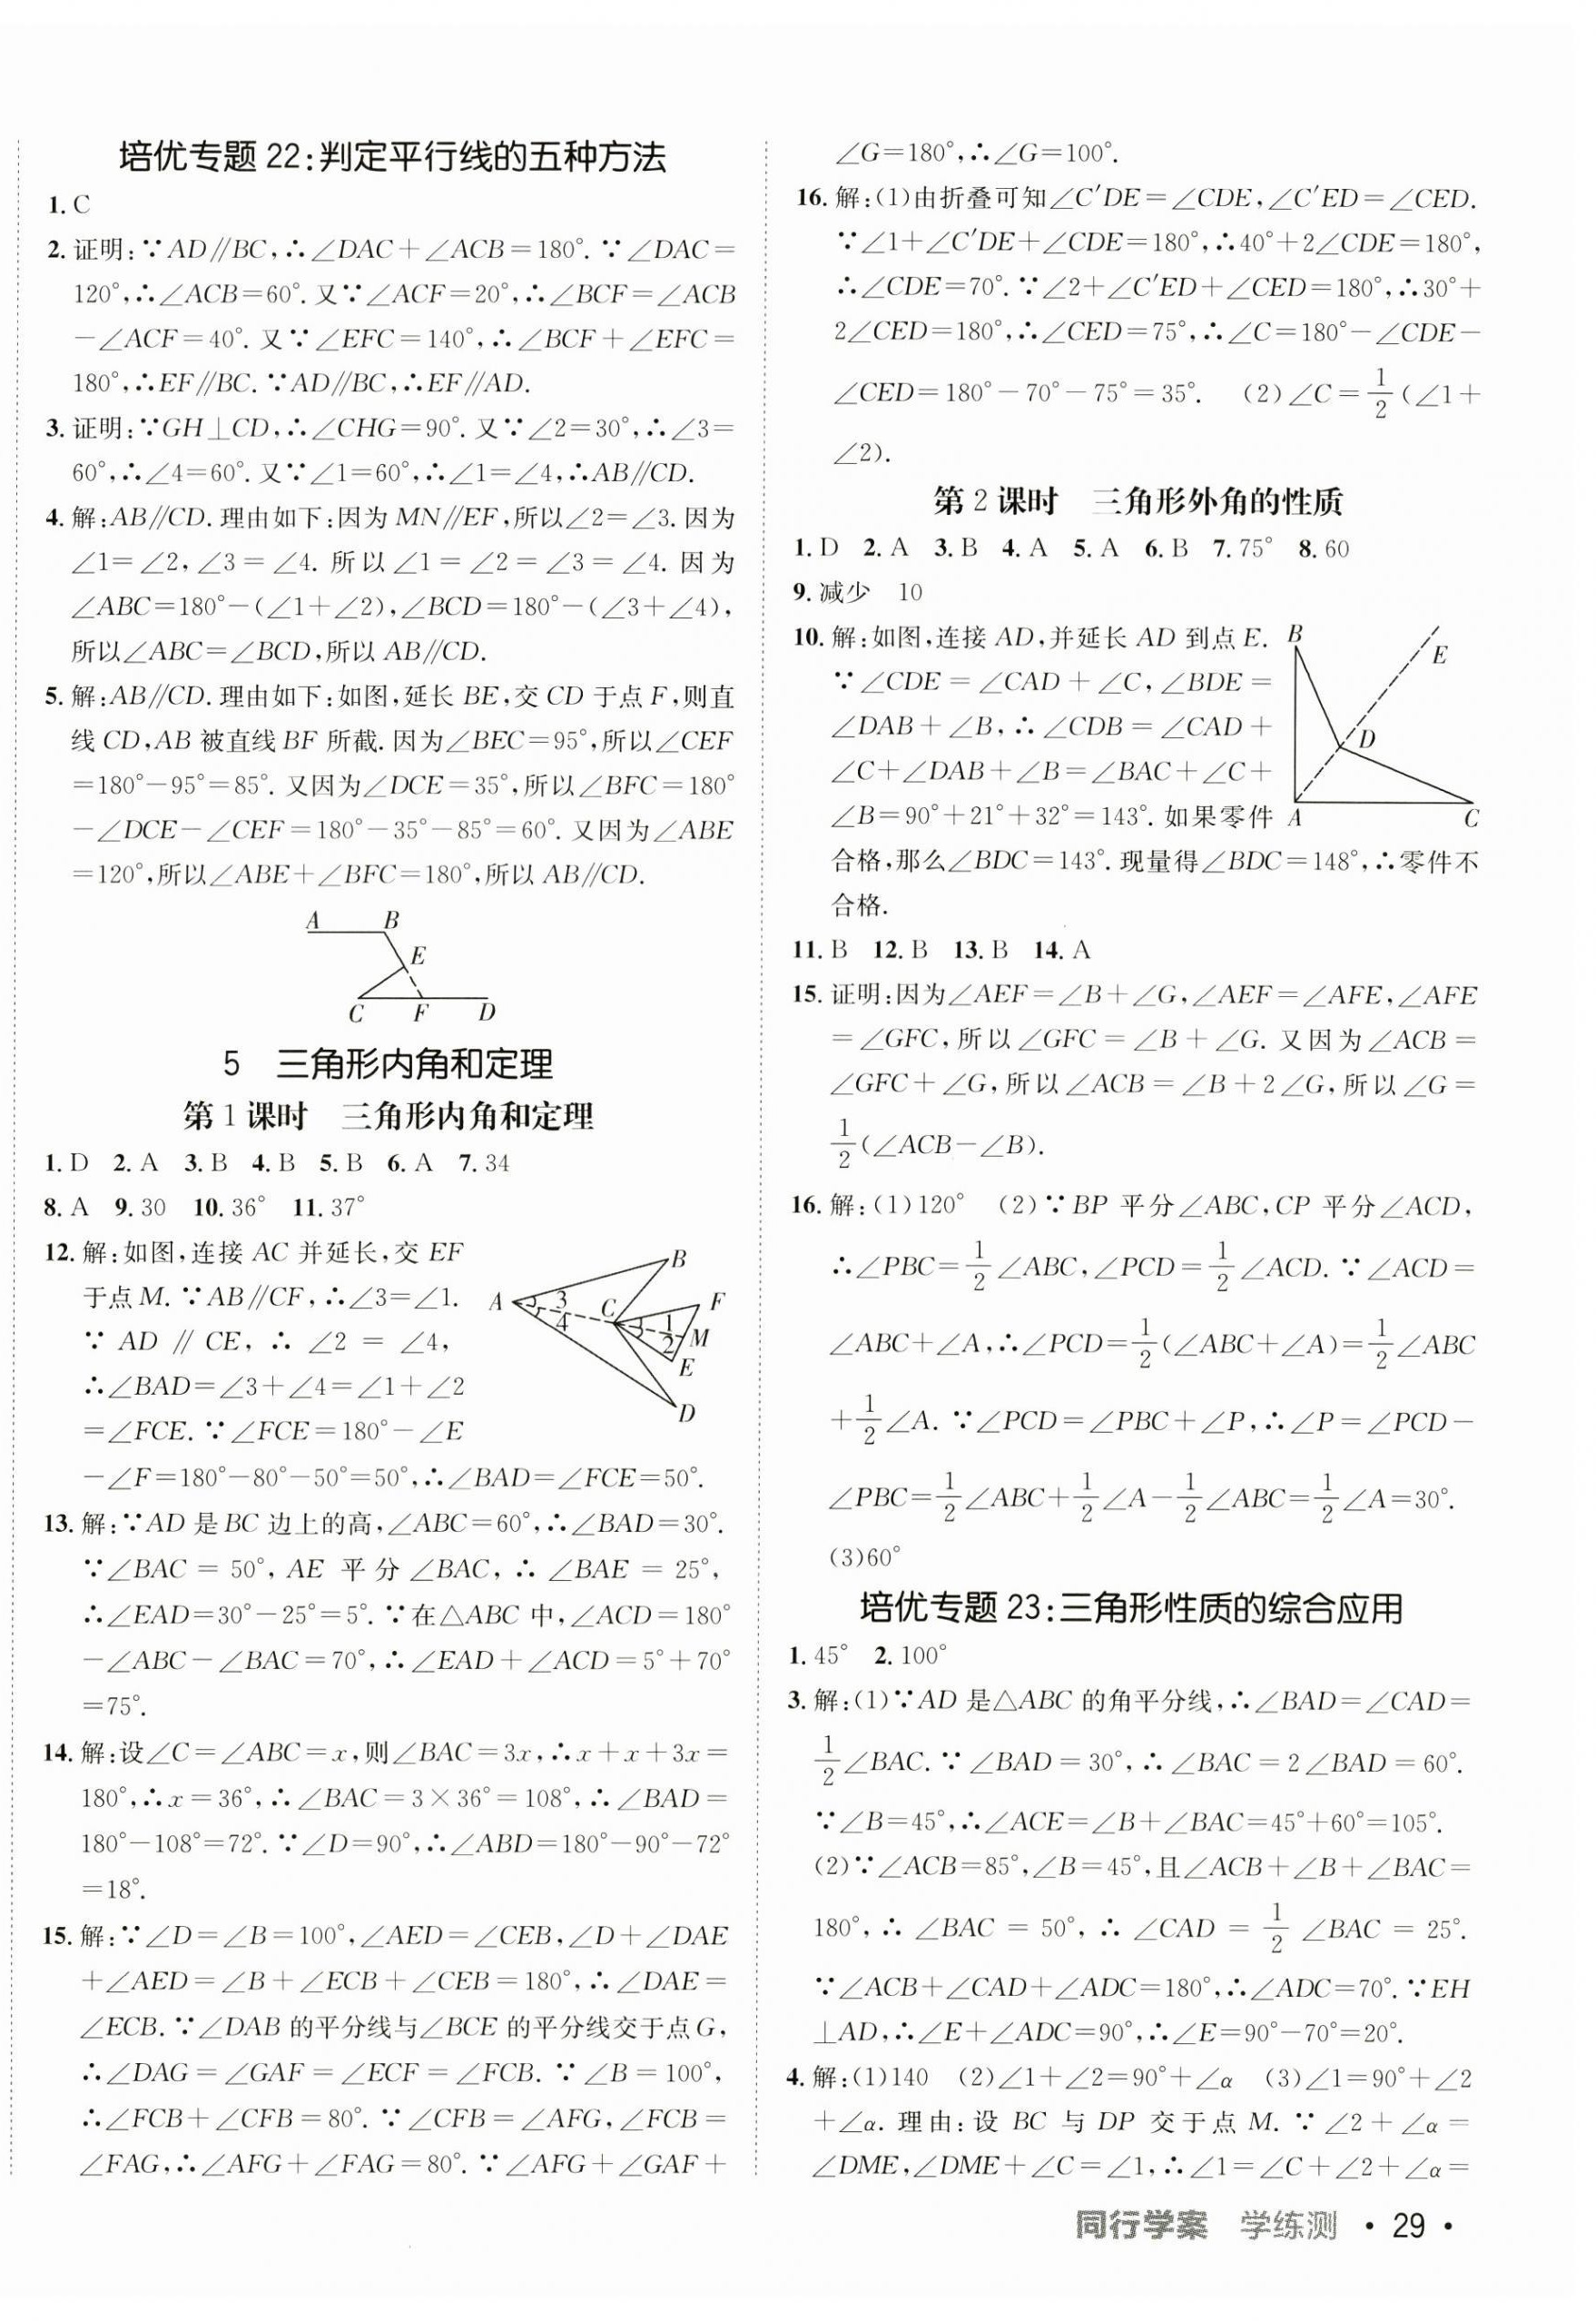 培优专题22:判定平行线的五种方法
1. C
2. 证明:∵AD∥BC,∴∠DAC+∠ACB=180°. ∵∠DAC=
120°,∴∠ACB=60°. 又∵∠ACF=20°,∴∠BCF=∠ACB
-∠ACF=40°. 又∵∠EFC=140°,∴∠BCF+∠EFC=
180°,∴EF∥BC. ∵AD∥BC,∴EF∥AD.
3. 证明:∵GH⊥CD,∴∠CHG=90°. 又∵∠2=30°,∴∠3=
60°,∴∠4=60°. 又∵∠1=60°,∴∠1=∠4,∴AB∥CD.
4. 解:AB∥CD. 理由如下:因为MN∥EF,所以∠2=∠3. 因为
∠1=∠2,∠3=∠4. 所以∠1=∠2=∠3=∠4. 因为
∠ABC=180°-(∠1+∠2),∠BCD=180°-(∠3+∠4),
所以∠ABC=∠BCD,所以AB∥CD.
5. 解:AB∥CD. 理由如下:如图,延长BE,交CD于点F,则直
线CD,AB被直线BF所截. 因为∠BEC=95°,所以∠CEF
=180°-95°=85°. 又因为∠DCE=35°,所以∠BFC=180°
-∠DCE-∠CEF=180°-35°-85°=60°. 又因为∠ABE
=120°,所以∠ABE+∠BFC=180°,所以AB∥CD.
A B
E
C F D
5 三角形内角和定理
第1课时 三角形内角和定理
1. D 2. A 3. B 4. B 5. B 6. A 7. 34
8. A 9. 30 10. 36° 11. 37°
12. 解:如图,连接AC并延长,交EF
于点M. ∵AB∥CF,∴∠3=∠1.
∵AD∥CE,∴∠2=∠4,
∴∠BAD=∠3+∠4=∠1+∠2
=∠FCE. ∵∠FCE=180°-∠E
-∠F=180°-80°-50°=50°,∴∠BAD=∠FCE=50°.
B
A 3 C F
4 1
2 M
E
D
13. 解:∵AD是BC边上的高,∠ABC=60°,∴∠BAD=30°.
∵∠BAC=50°,AE平分∠BAC,∴∠BAE=25°,
∴∠EAD=30°-25°=5°. ∵在△ABC中,∠ACD=180°
-∠ABC-∠BAC=70°,∴∠EAD+∠ACD=5°+70°
=75°.
14. 解:设∠C=∠ABC=x,则∠BAC=3x,∴x+x+3x=
180°,∴x=36°,∴∠BAC=3×36°=108°,∴∠BAD=
180°-108°=72°. ∵∠D=90°,∴∠ABD=180°-90°-72°
=18°.
15. 解:∵∠D=∠B=100°,∠AED=∠CEB,∠D+∠DAE
+∠AED=∠B+∠ECB+∠CEB=180°,∴∠DAE=
∠ECB. ∵∠DAB的平分线与∠BCE的平分线交于点G,
∴∠DAG=∠GAF=∠ECF=∠FCB. ∵∠B=100°,
∴∠FCB+∠CFB=80°. ∵∠CFB=∠AFG,∠FCB=
∠FAG,∴∠AFG+∠FAG=80°. ∵∠AFG+∠GAF+
∠G=180°,∴∠G=100°.
16. 解:(1)由折叠可知∠C′DE=∠CDE,∠C′ED=∠CED.
∵∠1+∠C′DE+∠CDE=180°,∴40°+2∠CDE=180°,
∴∠CDE=70°. ∵∠2+∠C′ED+∠CED=180°,∴30°+
2∠CED=180°,∴∠CED=75°,∴∠C=180°-∠CDE-
∠CED=180°-70°-75°=35°. (2)∠C=1/2(∠1+
∠2).
第2课时 三角形外角的性质
1. D 2. A 3. B 4. A 5. A 6. B 7. 75° 8. 60
9. 减少 10
10. 解:如图,连接AD,并延长AD到点E.
∵∠CDE=∠CAD+∠C,∠BDE=
∠DAB+∠B,∴∠CDB=∠CAD+
∠C+∠DAB+∠B=∠BAC+∠C+
∠B=90°+21°+32°=143°. 如果零件
合格,那么∠BDC=143°. 现量得∠BDC=148°,∴零件不
合格.
B
E
D
A C
11. B 12. B 13. B 14. A
15. 证明:因为∠AEF=∠B+∠G,∠AEF=∠AFE,∠AFE
=∠GFC,所以∠GFC=∠B+∠G. 又因为∠ACB=
∠GFC+∠G,所以∠ACB=∠B+2∠G,所以∠G=
1/2(∠ACB-∠B).
16. 解:(1)120° (2)∵BP平分∠ABC,CP平分∠ACD,
∴∠PBC=1/2∠ABC,∠PCD=1/2∠ACD. ∵∠ACD=
∠ABC+∠A,∴∠PCD=1/2(∠ABC+∠A)=1/2∠ABC
+1/2∠A. ∵∠PCD=∠PBC+∠P,∴∠P=∠PCD-
∠PBC=1/2∠ABC+1/2∠A-1/2∠ABC=1/2∠A=30°.
(3)60°
培优专题23:三角形性质的综合应用
1. 45° 2. 100°
3. 解:(1)∵AD是△ABC的角平分线,∴∠BAD=∠CAD=
1/2∠BAC. ∵∠BAD=30°,∴∠BAC=2∠BAD=60°.
∵∠B=45°,∴∠ACE=∠B+∠BAC=45°+60°=105°.
(2)∵∠ACB=85°,∠B=45°,且∠ACB+∠B+∠BAC=
180°,∴∠BAC=50°,∴∠CAD=1/2∠BAC=25°.
∵∠ACB+∠CAD+∠ADC=180°,∴∠ADC=70°. ∵EH
⊥AD,∴∠E+∠ADC=90°,∴∠E=90°-70°=20°.
4. 解:(1)140 (2)∠1+∠2=90°+∠α (3)∠1=90°+∠2
+∠α. 理由:设BC与DP交于点M. ∵∠2+∠α=
∠DME,∠DME+∠C=∠1,∴∠1=∠C+∠2+∠α=
同行学案 学练测 · 29 ·